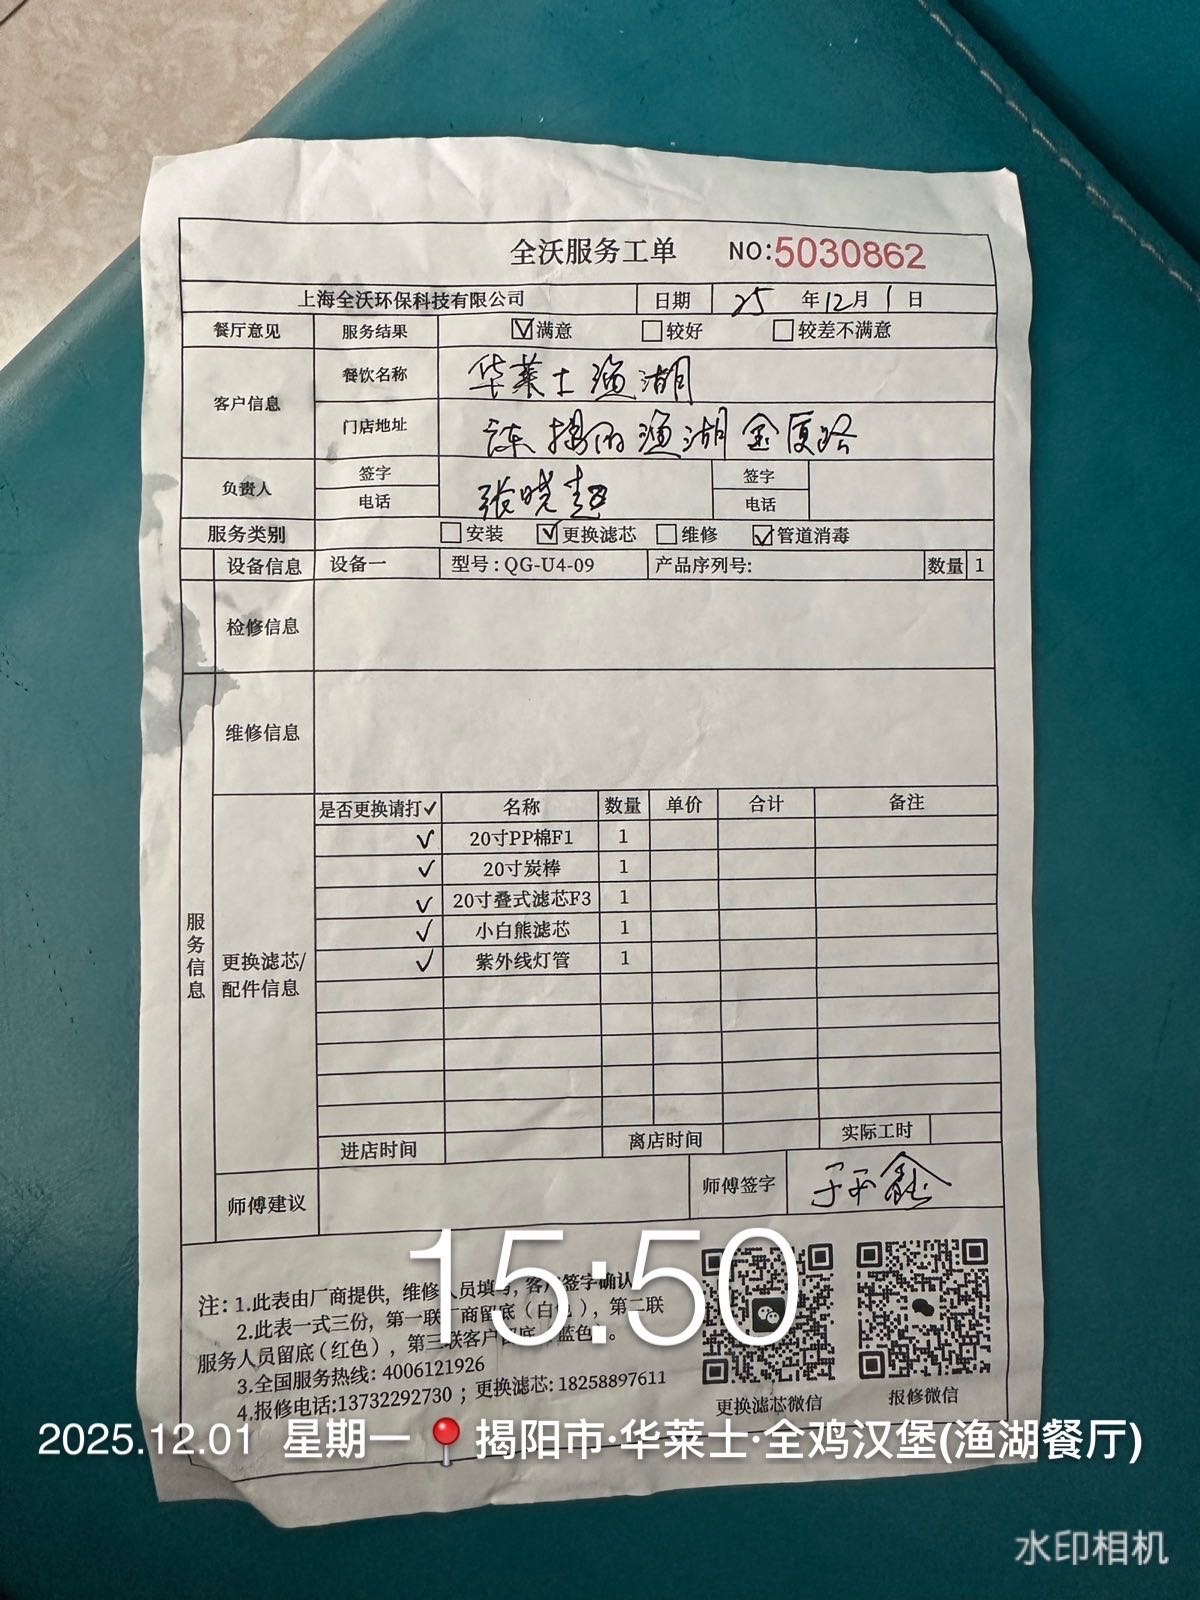 全沃服务工单 NO:5030862
上海全沃环保科技有限公司 日期 25 年 12 月 1 日
餐厅意见 服务结果 ☑满意 □较好 □较差不满意
客户信息 餐饮名称 华莱士渔湖
门店地址 渔湖金厦路
负责人 签字 张晓 签字
电话 电话
服务类别 □安装 ☑更换滤芯 □维修 ☑管道消毒
设备信息 设备一 型号:QG-U4-09 产品序列号: 数量 1
检修信息
维修信息
服务信息
更换滤芯/配件信息
是否更换请打✓ 名称 数量 单价 合计 备注
✓ 20寸PP棉F1 1
✓ 20寸炭棒 1
✓ 20寸叠式滤芯F3 1
✓ 小白熊滤芯 1
✓ 紫外线灯管 1
进店时间 离店时间 实际工时
师傅建议 师傅签字
15:50
注: 1.此表由厂商提供, 维修人员填写, 客户签字确认
2.此表一式三份, 第一联厂商留底(白色), 第二联
服务人员留底(红色), 第三联客户留底(蓝色)。
3.全国服务热线: 4006121926
4.报修电话:13732292730 ; 更换滤芯: 18258897611
更换滤芯微信 报修微信
2025.12.01 星期一 揭阳市·华莱士·全鸡汉堡(渔湖餐厅)
水印相机